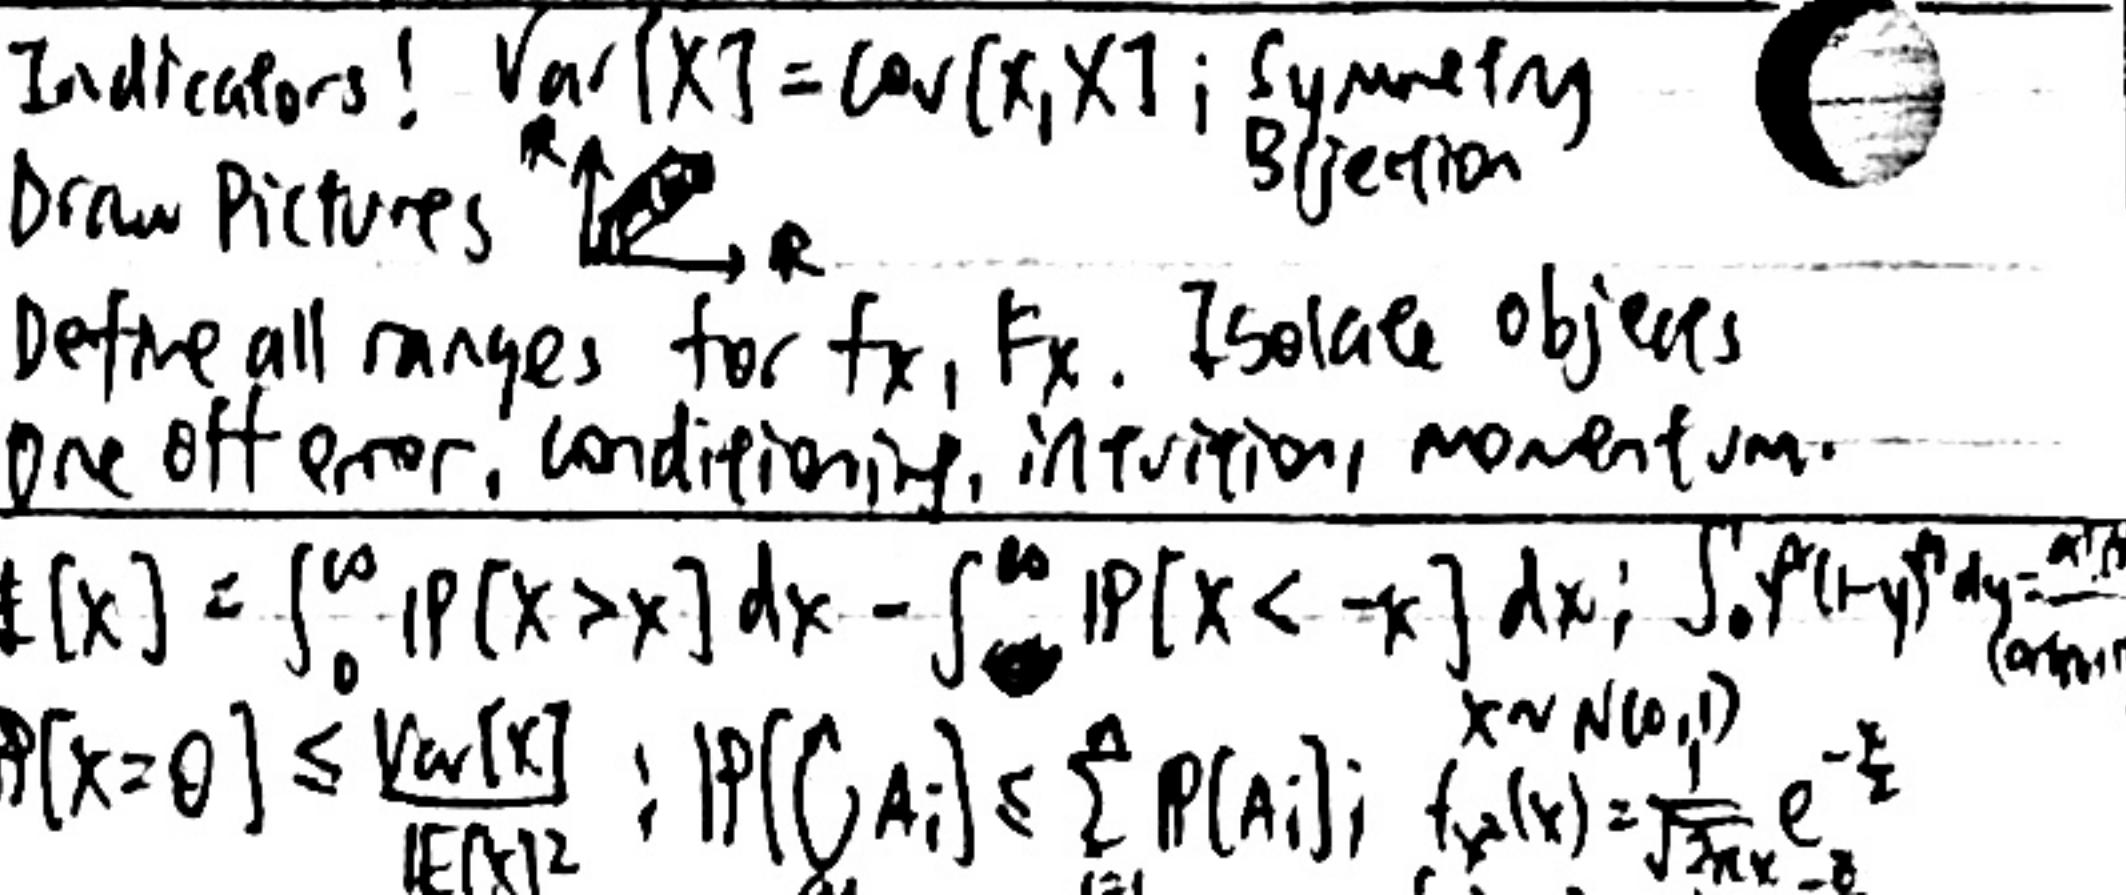 Indicators! Var[X] = Cov[X,X] ; Symmetry
Bijection
Draw Pictures R R
Define all ranges for fx, Fx. Isolate objects
One off error, conditioning, intuition, momentum.
E[X] = ∫₀^∞ IP[X > x] dx - ∫^∞ IP[X < -x] dx ; ∫₀¹ y (1-y) dy =
X ~ N(0,1)
IP[X=0] ≤ Var[X] / IE[X]² ; IP[∪ Ai] ≤ Σⁿ IP[Ai] ; f_X²(x) = 1/√2πx e^(-x/2)